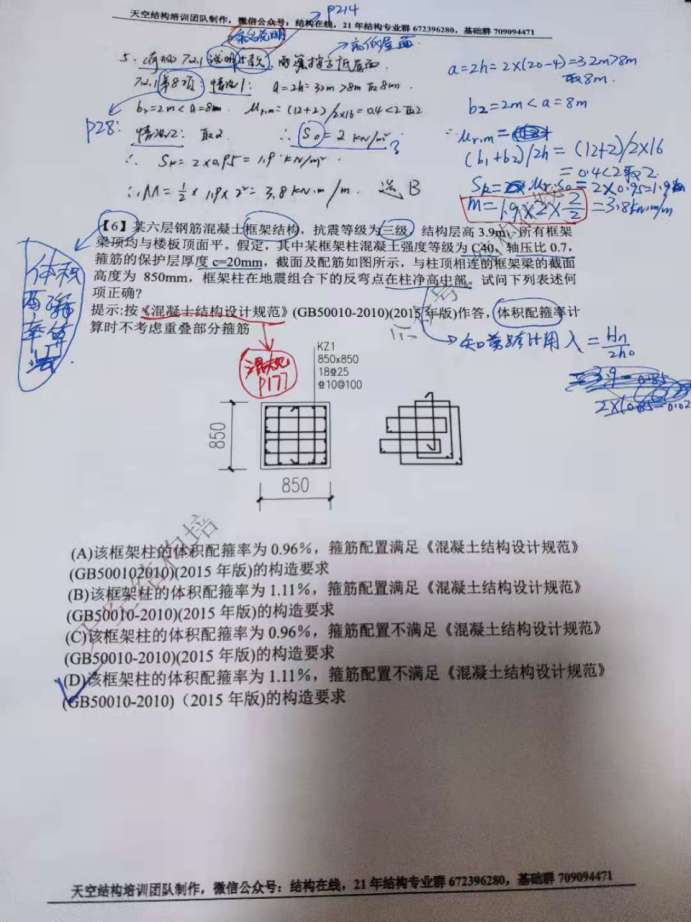 P214
天空结构培训团队制作，微信公众号：结构在线，21 年结构专业群 672396280，基础群 709094471
高低屋面
a=2h=2×(20-4)=32m>8m
取8m.
7.2.1第8项：情况1：a=2h=32m>8m 取8m
b₂=2m<a=8m
b₂=2m<a=8m. μr.m=(12+2)/2×16=0.4<2取2
P28:
情况2：取2. ∴S₀=2 kN/m²
(b₁+b₂)/2h=(12+2)/2×16
=0.4<2取2
∴ Sk=2×0.95=1.9 kN/m²
∴M=½×1.9×2²=3.8kN.m/m. 选B
m=1.9×2×2/2=3.8kN.m/m
【6】某六层钢筋混凝土框架结构，抗震等级为三级，结构层高 3.9m，所有框架
梁顶均与楼板顶面平。假定，其中某框架柱混凝土强度等级为 C40，轴压比 0.7，
箍筋的保护层厚度 c=20mm，截面及配筋如图所示，与柱顶相连的框架梁的截面
高度为 850mm，框架柱在地震组合下的反弯点在柱净高中部。试问下列表述何
项正确？
提示:按《混凝土结构设计规范》(GB50010-2010)(2015 年版)作答，体积配箍率计
算时不考虑重叠部分箍筋
体积
λ=Hn/2h₀
P177
KZ1
850x850
18⌽25
⌽10@100
850
850
(A)该框架柱的体积配箍率为 0.96%，箍筋配置满足《混凝土结构设计规范》
(GB500102010)(2015 年版)的构造要求
(B)该框架柱的体积配箍率为 1.11%，箍筋配置满足《混凝土结构设计规范》
(GB50010-2010)(2015 年版)的构造要求
(C)该框架柱的体积配箍率为 0.96%，箍筋配置不满足《混凝土结构设计规范》
(GB50010-2010)(2015 年版)的构造要求
(D)该框架柱的体积配箍率为 1.11%，箍筋配置不满足《混凝土结构设计规范》
(GB50010-2010)（2015 年版)的构造要求
天空结构培训团队制作，微信公众号：结构在线，21 年结构专业群 672396280，基础群 709094471